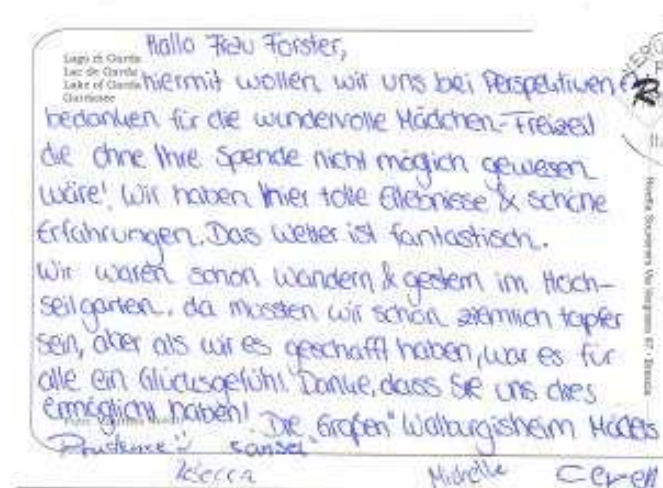 Hallo Frau Forster,
Lago di Garda
Lac de Garda
Lake of Garda
Gardasee
hiermit wollen wir uns bei Perspektiven
bedanken für die wundervolle Mädchen-Freizeit
die ohne Ihre Spende nicht möglich gewesen
wäre! Wir haben hier tolle Erlebnisse & schöne
Erfahrungen. Das Wetter ist fantastisch.
Wir waren schon Wandern & gestern im Hoch-
seilgarten, da mussten wir schon ziemlich tapfer
sein, aber als wir es geschafft haben, war es für
alle ein Glücksgefühl. Danke, dass Sie uns dies
ermöglicht haben!
Die "Großen" Walburgisheim Mädels
Cansel
Michelle
Ceren